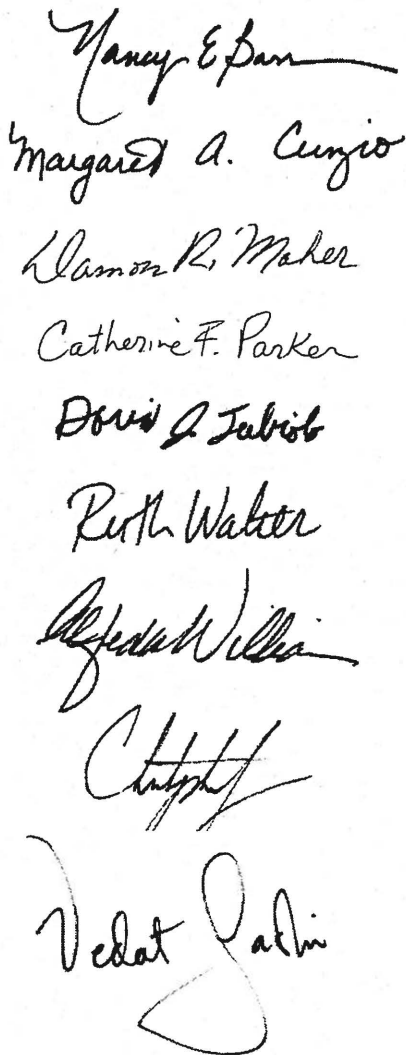 Nancy E Barr
Margaret A. Cunzio
Damon R. Maher
Catherine F. Parker
David J. Tubiolo
Ruth Walter
Alfreda William
Christopher
Vedat